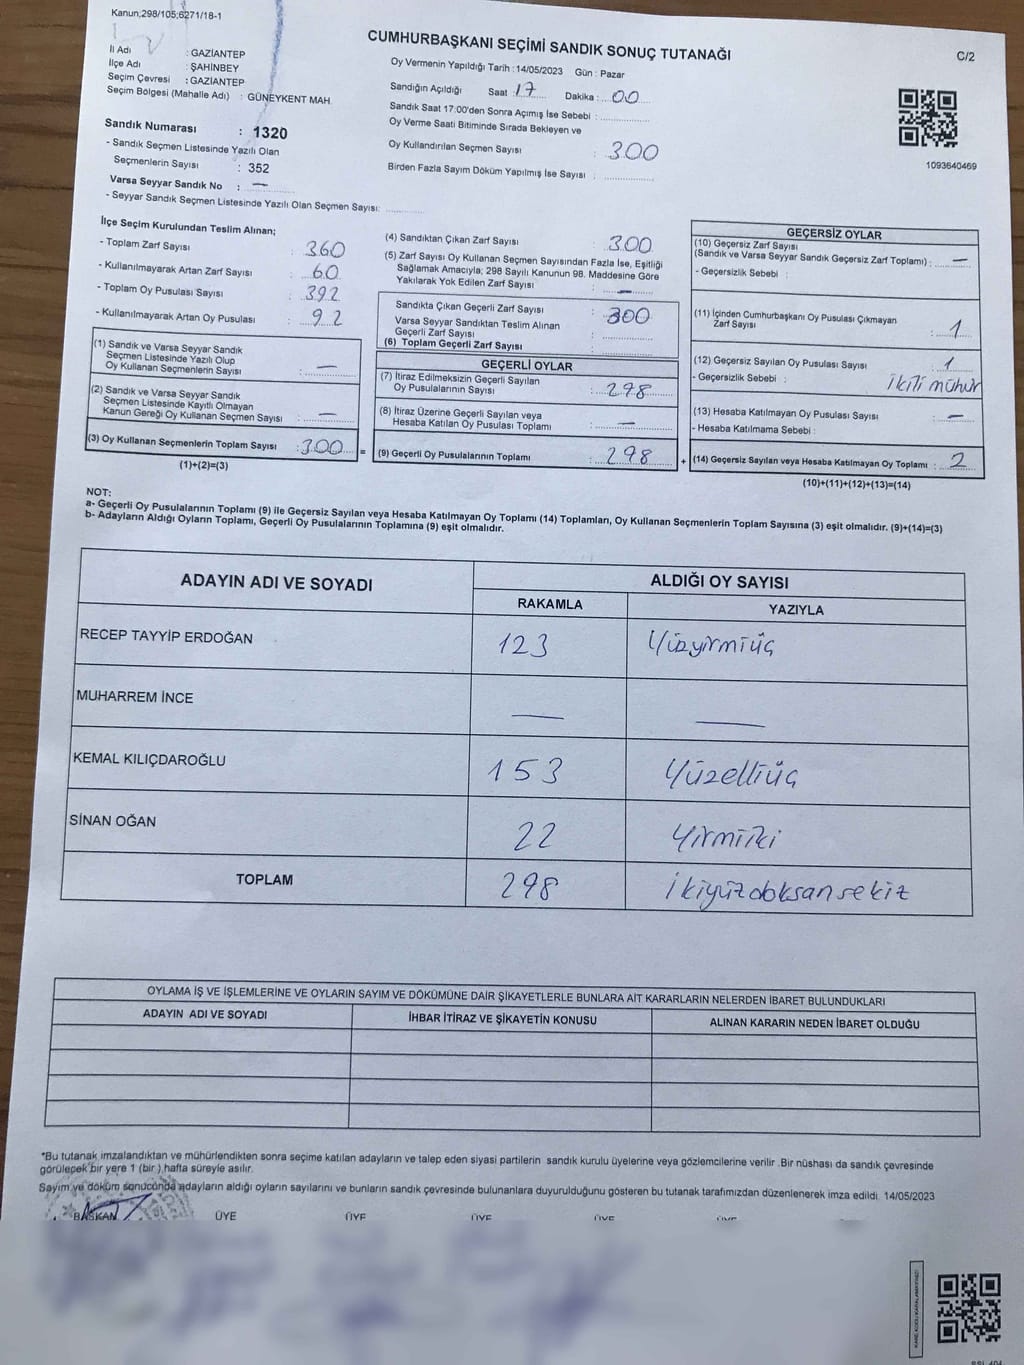 Kanun;298/105;6271/18-1
CUMHURBAŞKANI SEÇİMİ SANDIK SONUÇ TUTANAĞI
C/2
İl Adı : GAZİANTEP
İlçe Adı : ŞAHİNBEY
Seçim Çevresi : GAZİANTEP
Seçim Bölgesi (Mahalle Adı) : GÜNEYKENT MAH.
Sandık Numarası : 1320
- Sandık Seçmen Listesinde Yazılı Olan
Seçmenlerin Sayısı : 352
Varsa Seyyar Sandık No : —
- Seyyar Sandık Seçmen Listesinde Yazılı Olan Seçmen Sayısı:
Oy Vermenin Yapıldığı Tarih : 14/05/2023 Gün : Pazar
Sandığın Açıldığı Saat : 17 Dakika : 00
Sandık Saat 17:00'den Sonra Açımış İse Sebebi :
Oy Verme Saati Bitiminde Sırada Bekleyen ve
Oy Kullandırılan Seçmen Sayısı : 300
Birden Fazla Sayım Döküm Yapılmış İse Sayısı :
1093640469
İlçe Seçim Kurulundan Teslim Alınan;
- Toplam Zarf Sayısı : 360
- Kullanılmayarak Artan Zarf Sayısı : 60
- Toplam Oy Pusulası Sayısı : 392
- Kullanılmayarak Artan Oy Pusulası : 92
(1) Sandık ve Varsa Seyyar Sandık
Seçmen Listesinde Yazılı Olup
Oy Kullanan Seçmenlerin Sayısı : —
(2) Sandık ve Varsa Seyyar Sandık
Seçmen Listesinde Kayıtlı Olmayan
Kanun Gereği Oy Kullanan Seçmen Sayısı : —
(3) Oy Kullanan Seçmenlerin Toplam Sayısı : 300 =
(1)+(2)=(3)
(4) Sandıktan Çıkan Zarf Sayısı : 300
(5) Zarf Sayısı Oy Kullanan Seçmen Sayısından Fazla İse, Eşitliği
Sağlamak Amacıyla; 298 Sayılı Kanunun 98. Maddesine Göre
Yakılarak Yok Edilen Zarf Sayısı : —
Sandıkta Çıkan Geçerli Zarf Sayısı : 300
Varsa Seyyar Sandıktan Teslim Alınan
Geçerli Zarf Sayısı :
(6) Toplam Geçerli Zarf Sayısı :
GEÇERLİ OYLAR
(7) İtiraz Edilmeksizin Geçerli Sayılan
Oy Pusulalarının Sayısı : 298
(8) İtiraz Üzerine Geçerli Sayılan veya
Hesaba Katılan Oy Pusulası Toplamı : —
(9) Geçerli Oy Pusulalarının Toplamı : 298 +
GEÇERSİZ OYLAR
(10) Geçersiz Zarf Sayısı
(Sandık ve Varsa Seyyar Sandık Geçersiz Zarf Toplamı) : —
- Geçersizlik Sebebi :
(11) İçinden Cumhurbaşkanı Oy Pusulası Çıkmayan
Zarf Sayısı : 1
(12) Geçersiz Sayılan Oy Pusulası Sayısı : 1
- Geçersizlik Sebebi : ikili mühür
(13) Hesaba Katılmayan Oy Pusulası Sayısı : —
- Hesaba Katılmama Sebebi :
(14) Geçersiz Sayılan veya Hesaba Katılmayan Oy Toplamı : 2
(10)+(11)+(12)+(13)=(14)
NOT:
a- Geçerli Oy Pusulalarının Toplamı (9) ile Geçersiz Sayılan veya Hesaba Katılmayan Oy Toplamı (14) Toplamları, Oy Kullanan Seçmenlerin Toplam Sayısına (3) eşit olmalıdır. (9)+(14)=(3)
b- Adayların Aldığı Oyların Toplamı, Geçerli Oy Pusulalarının Toplamına (9) eşit olmalıdır.
ADAYIN ADI VE SOYADI ALDIĞI OY SAYISI
RAKAMLA YAZIYLA
RECEP TAYYİP ERDOĞAN 123 Yüzyirmiüç
MUHARREM İNCE — —
KEMAL KILIÇDAROĞLU 153 Yüzelliüç
SİNAN OĞAN 22 Yirmiiki
TOPLAM 298 İkiyüzdoksansekiz
OYLAMA İŞ VE İŞLEMLERİNE VE OYLARIN SAYIM VE DÖKÜMÜNE DAİR ŞİKAYETLERLE BUNLARA AİT KARARLARIN NELERDEN İBARET BULUNDUKLARI
ADAYIN ADI VE SOYADI İHBAR İTİRAZ VE ŞİKAYETİN KONUSU ALINAN KARARIN NEDEN İBARET OLDUĞU
*Bu tutanak imzalandıktan ve mühürlendikten sonra seçime katılan adayların ve talep eden siyasi partilerin sandık kurulu üyelerine veya gözlemcilerine verilir. Bir nüshası da sandık çevresinde
görülecek bir yere 1 (bir) hafta süreyle asılır.
Sayım ve döküm sonucunda adayların aldığı oyların sayılarını ve bunların sandık çevresinde bulunanlara duyurulduğunu gösteren bu tutanak tarafımızdan düzenlenerek imza edildi. 14/05/2023
BAŞKAN ÜYE ÜYE ÜYE ÜYE ÜYE